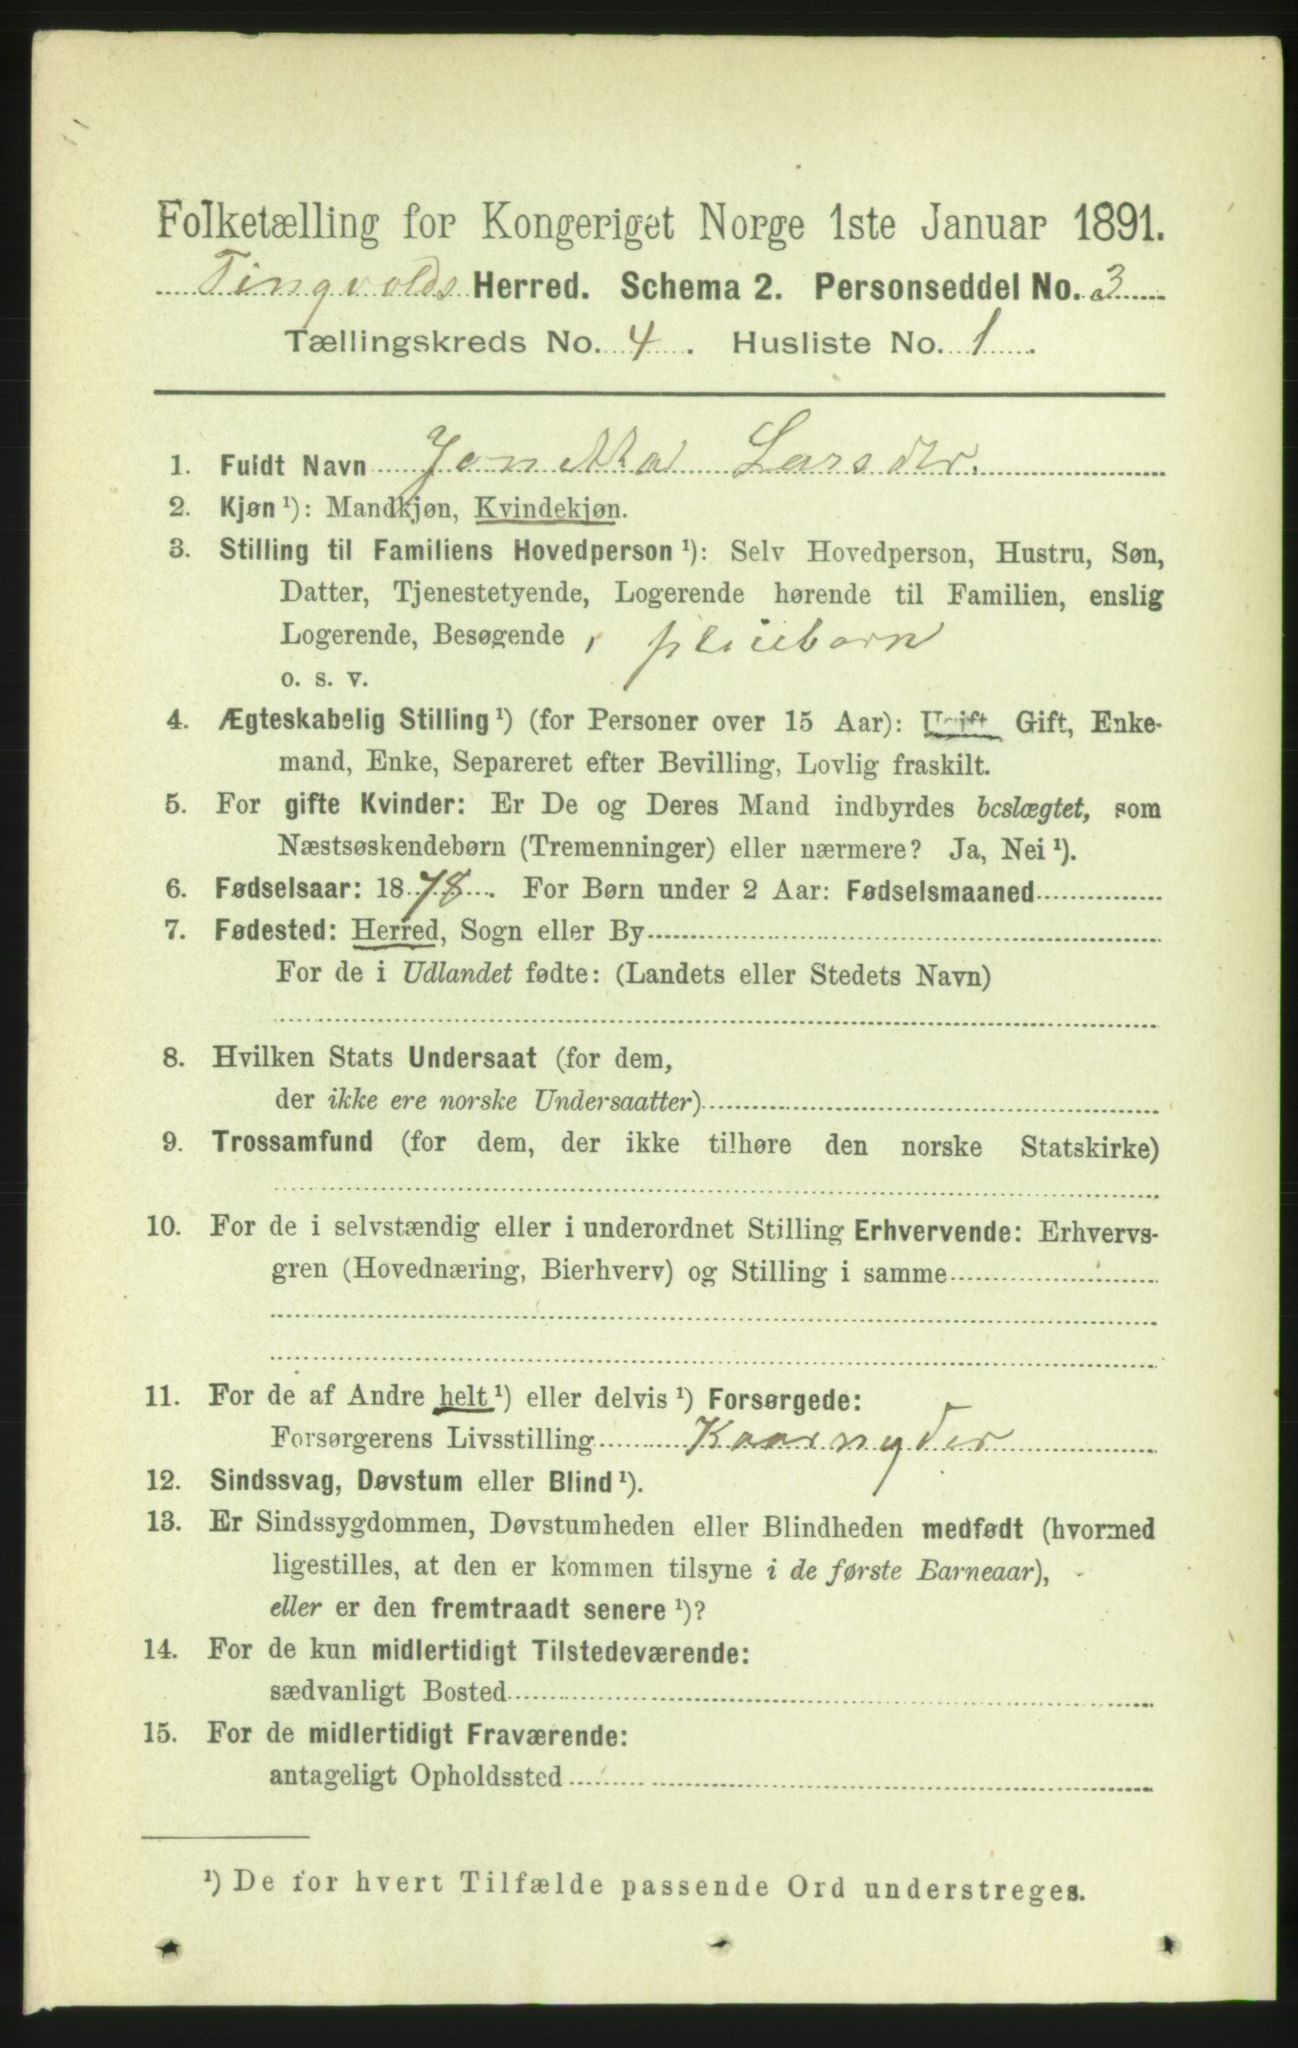 Folketælling for Kongeriget Norge 1ste Januar 1891.
Tingvolds Herred. Schema 2. Personseddel No. 3
Tællingskreds No. 4. Husliste No. 1.
1. Fuldt Navn Jon Larsdtr.
2. Kjøn ¹): Mandkjøn, Kvindekjøn.
3. Stilling til Familiens Hovedperson ¹): Selv Hovedperson, Hustru, Søn,
Datter, Tjenestetyende, Logerende hørende til Familien, enslig
Logerende, Besøgende , pleiebarn
o. s. v.
4. Ægteskabelig Stilling ¹) (for Personer over 15 Aar): Ugift, Gift, Enke-
mand, Enke, Separeret efter Bevilling, Lovlig fraskilt.
5. For gifte Kvinder: Er De og Deres Mand indbyrdes beslægtet, som
Næstsøskendebørn (Tremenninger) eller nærmere? Ja, Nei ¹).
6. Fødselsaar: 1878. For Børn under 2 Aar: Fødselsmaaned
7. Fødested: Herred, Sogn eller By
For de i Udlandet fødte: (Landets eller Stedets Navn)
8. Hvilken Stats Undersaat (for dem,
der ikke ere norske Undersaatter)
9. Trossamfund (for dem, der ikke tilhøre den norske Statskirke)
10. For de i selvstændig eller i underordnet Stilling Erhvervende: Erhvervs-
gren (Hovednæring, Bierhverv) og Stilling i samme
11. For de af Andre helt ¹) eller delvis ¹) Forsørgede:
Forsørgerens Livsstilling Kaarnyder
12. Sindssvag, Døvstum eller Blind ¹).
13. Er Sindssygdommen, Døvstumheden eller Blindheden medfødt (hvormed
ligestilles, at den er kommen tilsyne i de første Barneaar),
eller er den fremtraadt senere ¹)?
14. For de kun midlertidigt Tilstedeværende:
sædvanligt Bosted
15. For de midlertidigt Fraværende:
antageligt Opholdssted
¹) De for hvert Tilfælde passende Ord understreges.